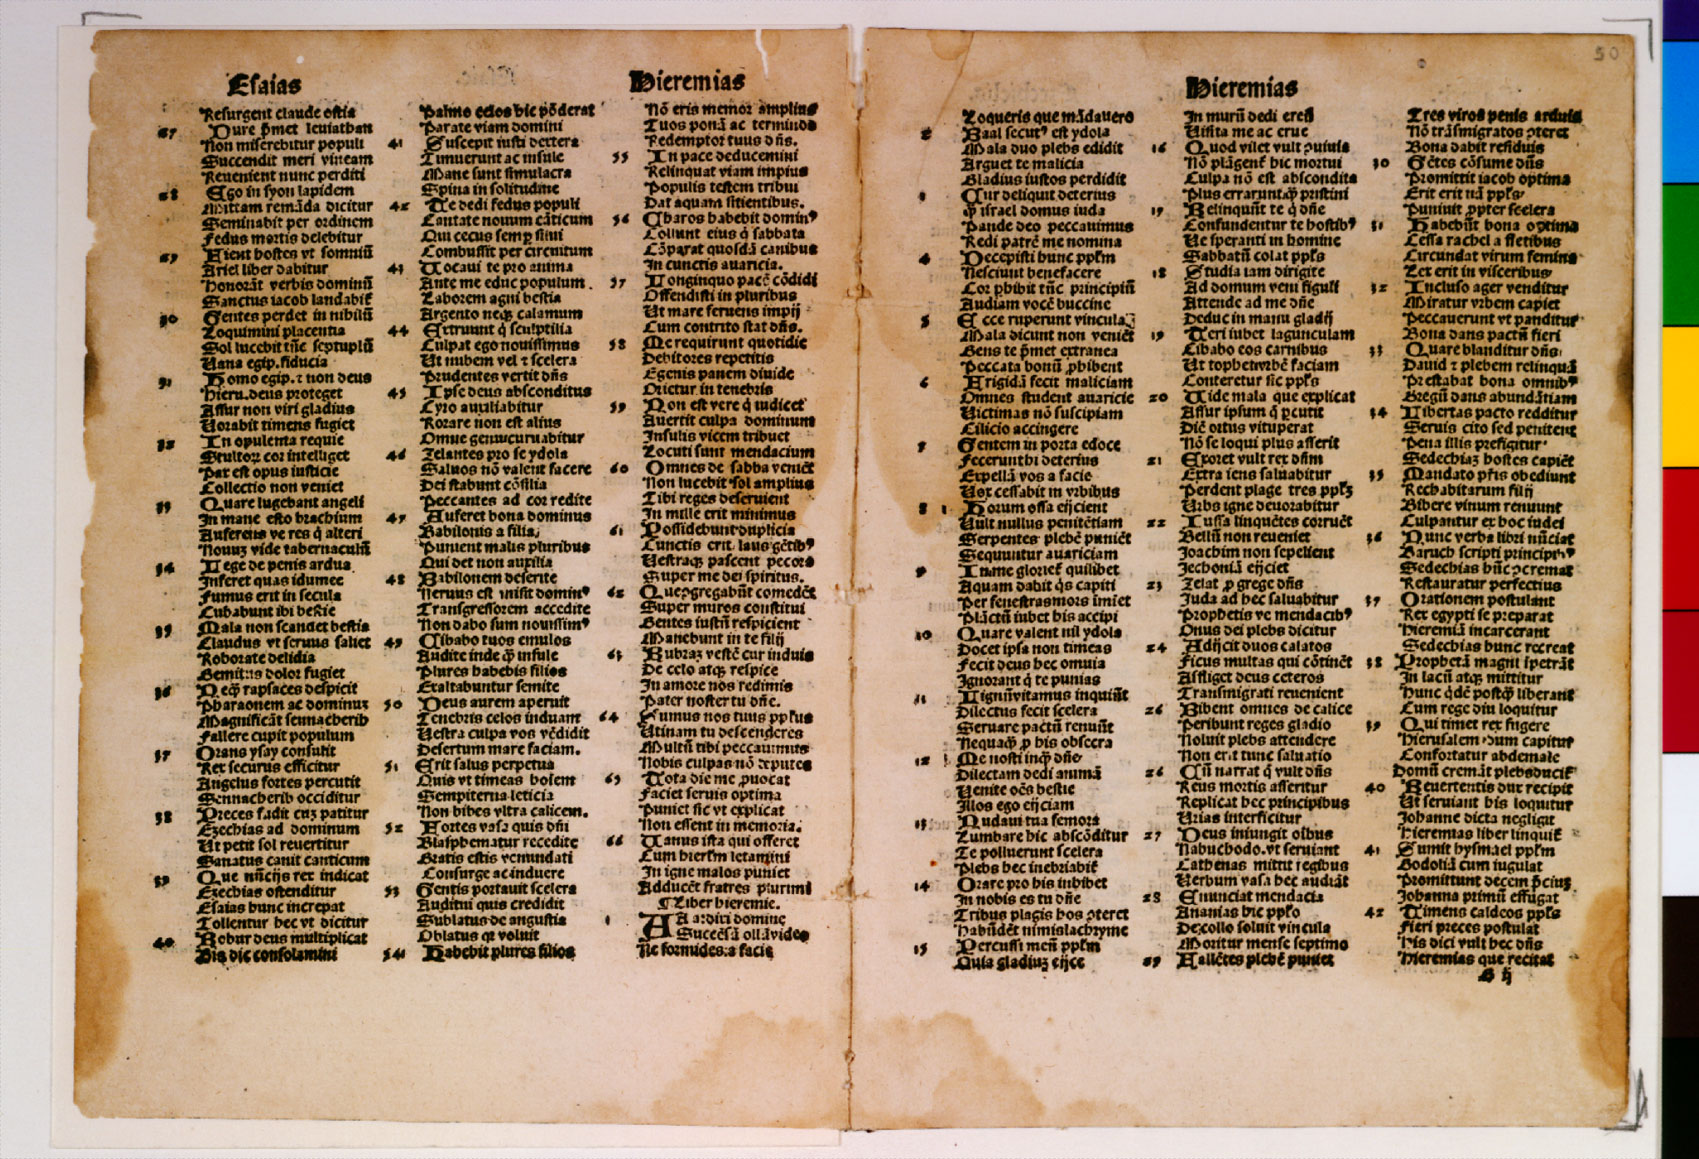 Esaias
Resurgent claude ostia
27 Dure p̄met leuiathan
Non miserebitur populi
Succendit meri vineam
Reuenient nunc perditi
28 Ego in syon lapidem
Mittam remāda dicitur
Seminabit per ordinem
Fedus mortis delebitur
29 Fient hostes vt somniū
Ariel liber dabitur
Honorāt verbis dominū
Sanctus iacob landabit̄
30 Gentes perdet in nibilū
Loquimini placentia
Sol lucebit tūc septuplū
Uana egip. fiducia
31 Homo egip. ⁊ non deus
Hieru. deus proteget
Assur non viri gladius
Uorabit timens fugiet
32 In opulenta requie
Stultoꝝ cor intelliget
Pax est opus iusticie
Collectio non veniet
33 Quare lugebant angeli
In mane esto brachium
Auferens ve res q̄ alteri
Nouuꝫ vide tabernaculū
34 Lege de penis ardua
Inferet quas idumee
Fumus erit in secula
Cubabunt ibi bestie
35 Mala non scandet bestia
Claudus vt seruus saliet
Roborate debilia
Gemitus dolor fugiet
36 Neqꝫ rapsaces despicit
Pharaonem ac dominuꝫ
Magnificāt sennacherib
Fallere cupit populum
37 Orans ysay consulit
Rex securus efficitur
Angelus fortes percutit
Sennacherib occiditur
38 Preces fadit cuꝫ patitur
Ezechias ad dominum
Ut petit sol reuertitur
Sanatus canit canticum
39 Que nūcijs rex indicat
Ezechias ostenditur
Esaias hunc increpat
Tollentur hec vt dicitur
40 Robur deus multiplicat
Bis dic consolamini
Palmo celos hic pōderat
Parate viam domini
41 Suscepit iusti dextera
Timuerunt ac insule
Mane sunt simulacra
Spina in solitudine
42 Te dedi fedus populi
Cantate nouum cāticum
Qui cecus semꝑ siui
Combussit per circuitum
43 Uocaui te pro anima
Ante me educ populum
Laborem agni bestia
Argento neqꝫ calamum
44 Extruunt q̄ sculptilia
Culpat ego nouissimus
Ut nubem vel ⁊ scelera
Prudentes vertit dn̄s
45 Ipse deus absconditus
Cyro auxiliabitur
Rorare non est alius
Omne genu curuabitur
46 Zelantes pro se ydola
Saluos nō valent facere
Dei stabunt cōsilia
Peccantes ad cor redite
47 Auferet bona dominus
Babilonis a filia
Punient malis pluribus
Qui det non auxilia
48 Babilonem deserite
Neruus est misit dominꝰ
Transgressorem accedite
Non dabo sum nouissimꝰ
49 Cibabo tuos emulos
Audite inde q̄ꝫ insule
Plures habebis filios
Exaltabuntur semite
50 Deus aurem aperuit
Tenebris celos induam
Uestra culpa vos vēdidit
Desertum mare faciam.
51 Erit salus perpetua
Quis vt timeas hoīem
Sempiterna leticia
Non bibes vltra calicem.
52 Fortes vasa quis dn̄i
Blasphematur recedite
Gratis estis venundati
Consurge ac induere
53 Gentis portauit scelera
Auditui quis credidit
Sublatus de angustia
Oblatus qꝛ voluit
54 Habebit plures filios
Hieremias
Nō eris memor amplius
Tuos ponā ac terminos
Redemptor tuus dn̄s.
55 In pace deducemini
Relinquat viam impius
Populis testem tribui
Dat aquam sitientibus.
56 Charos habebit dominꝰ
Coliunt eius q̄ sabbata
Cōparat quosdā canibus
In cunctis auaricia.
57 Longinquo pacē cōdidi
Offendisti in pluribus
Ut mare feruens impij
Cum contrito stat dn̄s.
58 Me requirunt quotidie
Debitores repetitis
Egenis panem diuide
Orietur in tenebris
59 Non est vere q̄ iudicet
Auertit culpa dominum
Insulis vicem tribuet
Locuti sunt mendacium
60 Omnes de sabba veniēt
Non lucebit sol amplius
Tibi reges deseruient
In mille erit minimus
61 Possidebunt duplicia
Cunctis erit laus gētibꝰ
Uestraqꝫ pascent pecora
Super me dei spiritus.
62 Que ꝯgregabūt comedēt
Super muros constitui
Gentes iustū respicient
Manebunt in te filij
63 Rubraꝫ vestē cur induis
De celo atqꝫ respice
In amore nos redimis
Pater noster tu dn̄e.
64 Sumus nos tuus ppl̄us
Utinam tu descenderes
Multū tibi peccauimus
Nobis culpas nō reputes
65 Tota die me ꝓuocat
Faciet seruis optima
Puniet sic vt explicat
Non essent in memoria.
66 Uanus ista qui offeret
Cum hierl̄m letamini
In igne malos puniet
Adducēt fratres plurimi
¶ Liber hieremie.
1 A A a ardiri domine
Succēsā ollā video
Ne formides a facie
Hieremias
50
Loqueris que mādauero
2 Baal secutꝰ est ydola
Mala duo plebs edidit
Arguet te malicia
Gladius iustos perdidit
3 Cur deliquit deterius
q̄ꝫ israel domus iuda
Pande deo peccauimus
Redi patrē me nomina
4 Decepisti hunc ppl̄m
Nesciunt benefacere
Cor ꝓhibit tūc principiū
Audiam vocē buccine
5 Ecce ruperunt vincula
Mala dicunt non veniēt
Gens te p̄met extranea
Peccata bonū ꝓhibent
6 Frigidā fecit maliciam
Omnes student auaricie
Uictimas nō suscipiam
Cilicio accingere
7 Gentem in porta edoce
Fecerunt hi deterius
Expellā vos a facie
Uox cessabit in vrbibus
8 Horum ossa eijcient
Uult nullus penitētiam
Serpentes plebē puniēt
Sequuntur auariciam
9 In me glorief quilibet
Aquam dabit q̄s capiti
Per fenestras mors īmiet
Plāctū iubet his accipi
10 Quare valent nil ydola
Docet ipsa non timeas
Fecit deus hec omnia
Ignorant q̄ te punias
11 Lignū vitamus inquiūt
Dilectus fecit scelera
Seruare pactū renuūt
Nequaqꝫ ꝓ his obsecra
12 Me nosti inqꝫ dn̄e
Dilectam dedi animā
Uenite oēs bestie
Illos ego eijciam
13 Nudaui tua femora
Lumbare hic abscōditur
Te polluerunt scelera
Plebs hec inebriabit̄
14 Orare pro his inhibet
In nobis es tu dn̄e
Tribus plagis hos ꝯteret
Habūdēt nimis lachryme
15 Percussi meū ppl̄m
Quia gladiuꝫ eijce
In murū dedi ereū
Uisita me ac erue
16 Quod vilet vult ꝯuiuia
Nō plāgent̄ hic mortui
Culpa nō est abscondita
Plus errarunt q̄ꝫ pristini
17 Relinquūt te q̄ dn̄e
Confundentur te hostibꝰ
Ue speranti in homine
Sabbatū colat ppl̄s
18 Studia iam dirigite
Ad domum veni figuli
Attende ad me dn̄e
Deduc in manu gladij
19 Teri iubet lagunculam
Cibabo eos carnibus
Ut tophet vrbē faciam
Conteretur sic ppl̄s
20 Uide mala que explicat
Assur ipsum q̄ ꝑcutit
Diē ortus vituperat
Nō se loqui plus asserit
21 Exoret vult rex dn̄m
Extra iens saluabitur
Perdent plage tres ppl̄ꝫ
Urbs igne deuorabitur
22 Iussa linquētes corruēt
Bellū non reueniet
Joachim non sepelient
Jechoniā eijciet
23 Zelat ꝓ grege dn̄s
Juda ad hec saluabitur
Prophetis ve mendacibꝰ
Onus dei plebs dicitur
24 Adijcit duos calatos
Ficus multas qui cōtinēt
Affliget deus ceteros
Transmigrati reuenient
26 Bibent omnes de calice
Peribunt reges gladio
Noluit plebs attendere
Non erit tunc saluatio
26 Cū narrat q̄ vult dn̄s
Reus mortis asseritur
Replicat hec principibus
Urias interficitur
27 Deus iniungit olbus
Nabuchodo. vt seruiant
Cathenas mittit regibus
Uerbum vasa hec audiāt
28 Enunciat mendacia
Ananias hic ppl̄o
De collo soluit vincula
Moritur mense septimo
29 Fallētes plebē puniet
Tres viros penis arduis
Nō trāsmigratos ꝯteret
Bona dabit residuis
30 Gētes cōsume dn̄s
Promittit iacob optima
Erit erit nā ppl̄s
Puniuit ꝓpter scelera
31 Habebūt bona optima
Cessa rachel a fletibus
Circundat virum femina
Lex erit in visceribus
32 Incluso ager venditur
Miratur vrbem capiet
Peccauerunt vt panditur
Bona dans pactū fieri
33 Quare blanditur dn̄s
Dauid ⁊ plebem relinquā
Prestabat bona omnibꝰ
Gregū dans abundātiam
34 Libertas pacto redditur
Seruis cito sed penitent
Pena illis prefigitur
Sedechiaꝫ hostes capiēt
35 Mandato pr̄is obediunt
Rechabitarum filij
Bibere vinum renuunt
Culpantur ex hoc iudei
36 Nunc verba libri nūciat
Baruch scripti principibꝰ
Sedechias hūc ꝯcremat
Restauratur perfectius
37 Orationem postulant
Rex egypti se preparat
Hieremiā incarcerant
Sedechias hunc recreat
38 Prophetā magni īpetrāt
In lacū atqꝫ mittitur
Hunc q̄dē postqꝫ liberant
Cum rege diu loquitur
39 Qui timet rex fugere
Hierusalem dum capitur
Confortatur abdemale
Domū cremāt plebs ducit̄
40 Reuertentis dux recipit
Ut seruiant his loquitur
Johanne dicta negligit
Hieremias liber linquit̄
41 Sumit hysmael ppl̄m
Godoliā cum iugulat
Promittunt decem p̄cius
Johanna primū effugat
42 Timens caldeos ppl̄s
Fieri preces postulat
His dici vult hec dn̄s
Hieremias que recitat
G ij